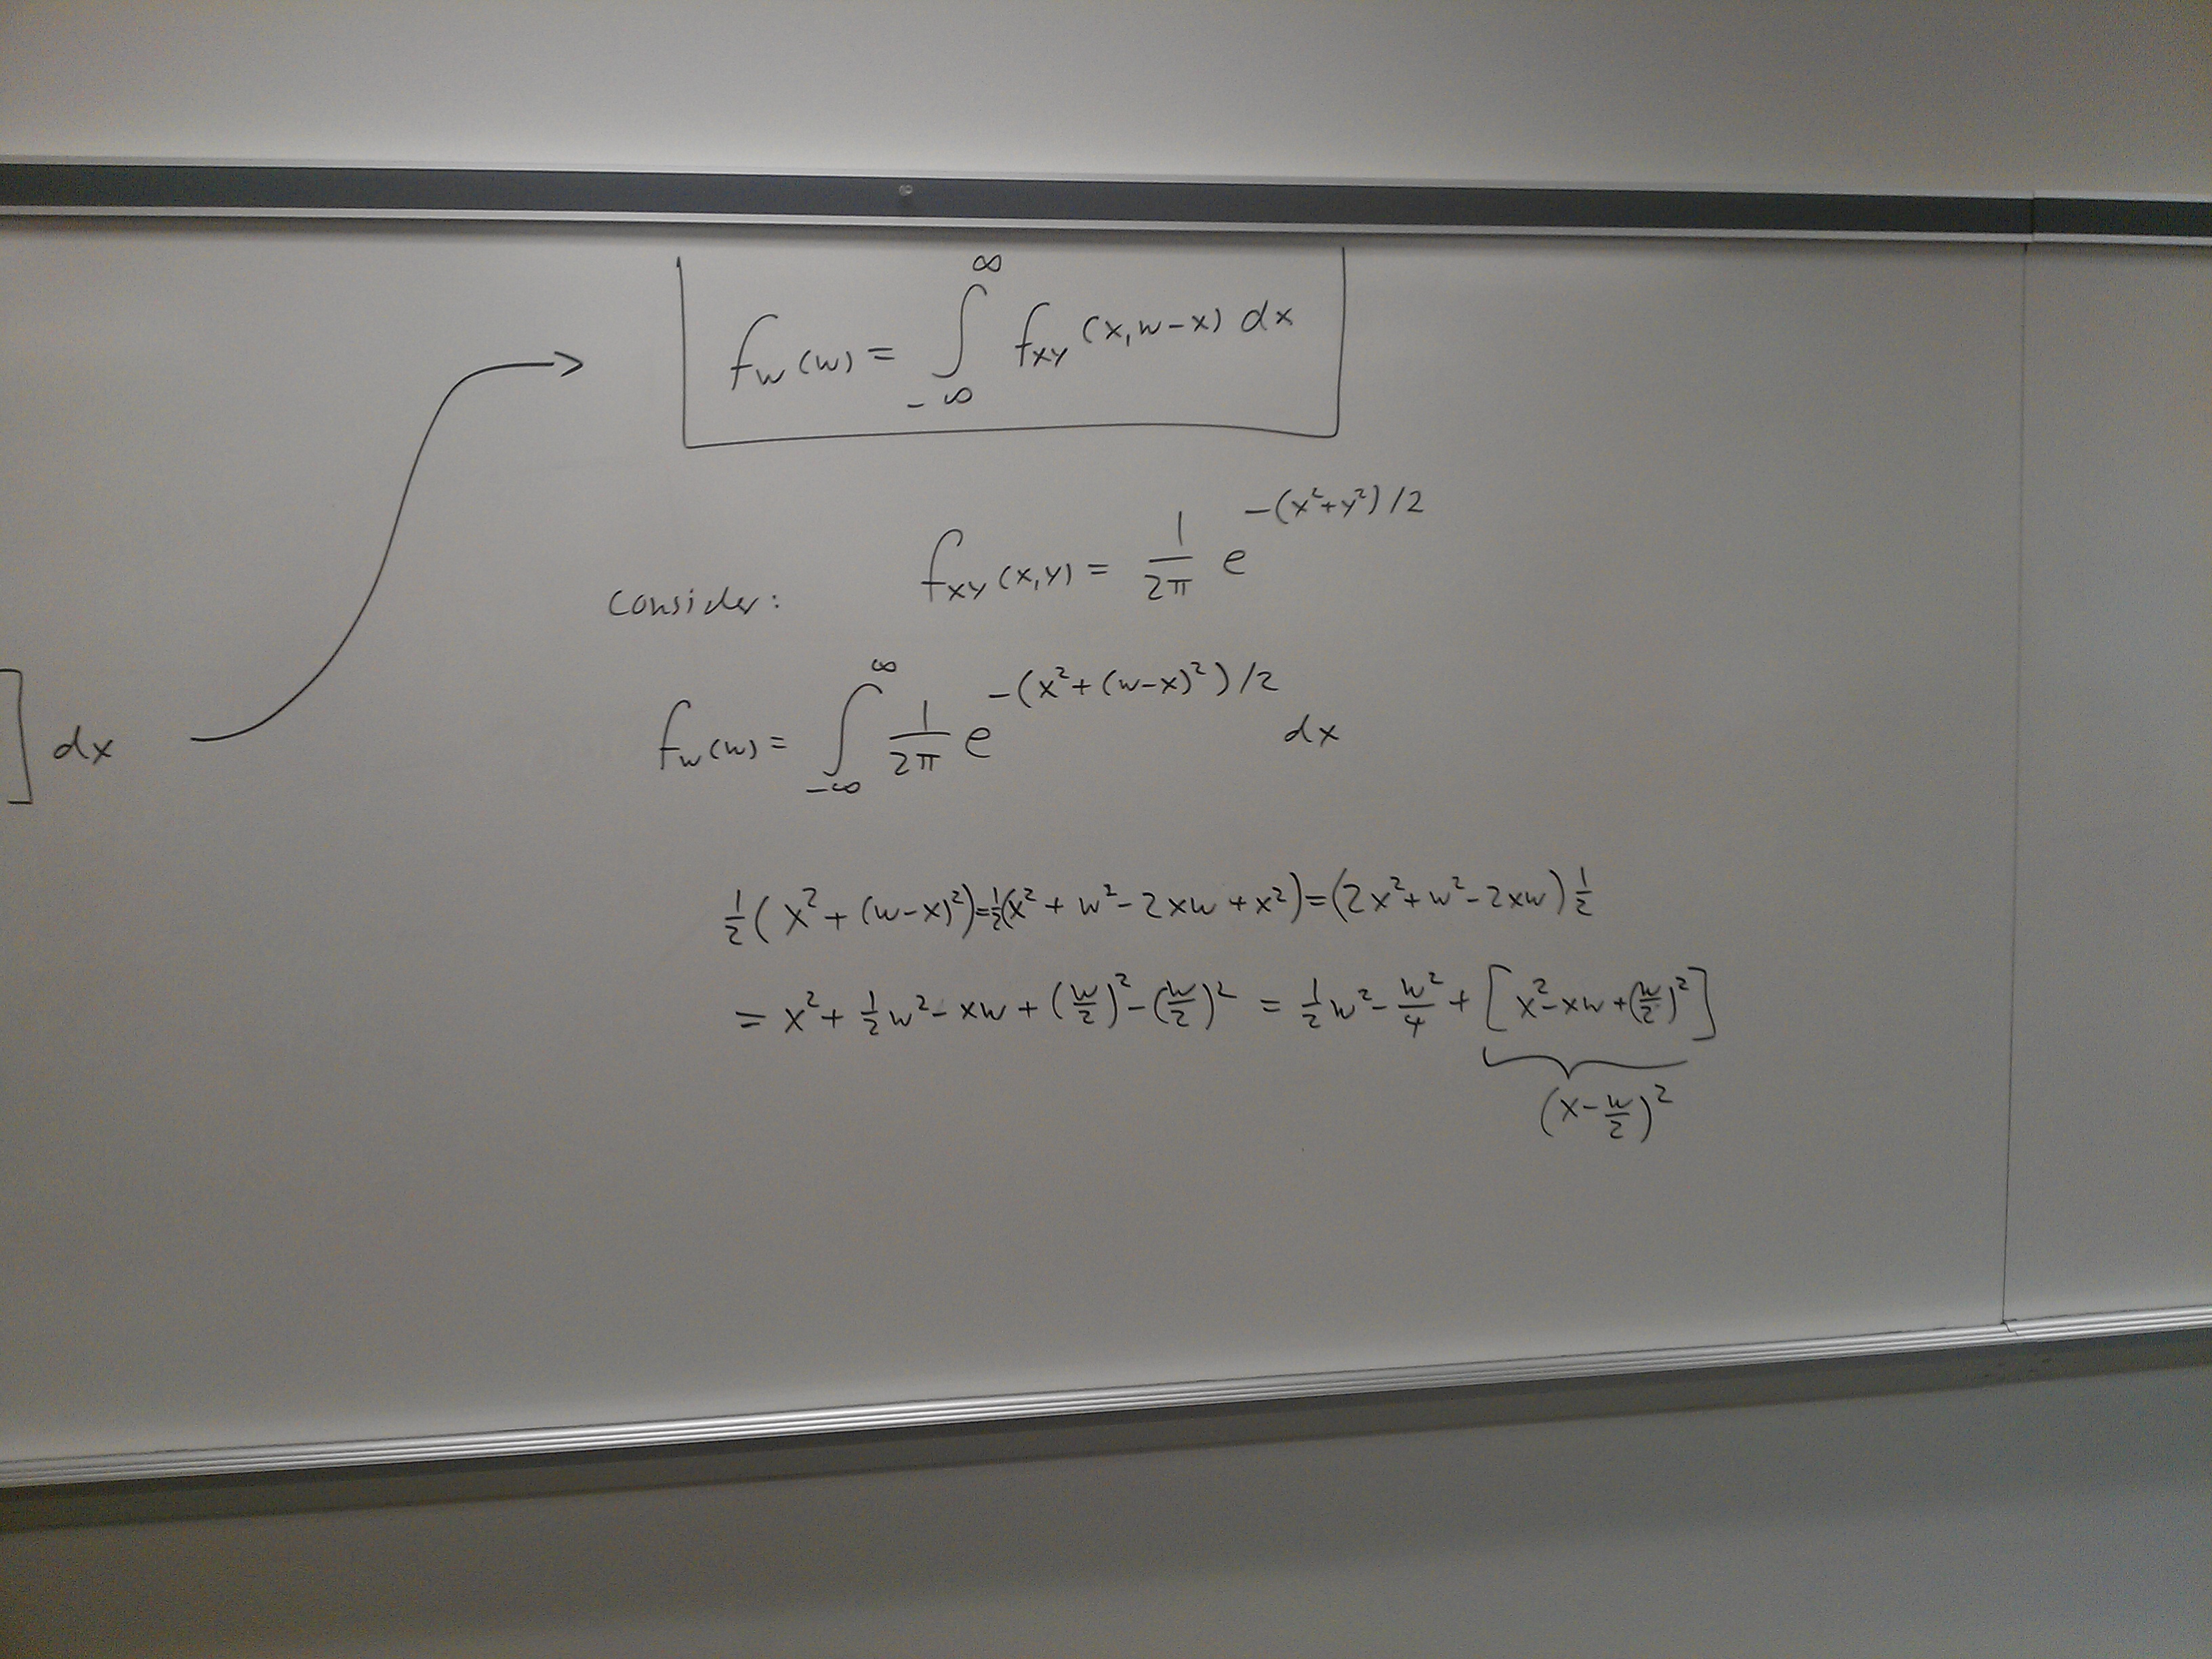 f_W(w) = ∫_{-∞}^{∞} f_{XY}(x, w-x) dx
consider: f_{XY}(x,y) = \frac{1}{2π} e^{-(x²+y²)/2}
] dx
f_W(w) = ∫_{-∞}^{∞} \frac{1}{2π} e^{-(x²+(w-x)²)/2} dx
\frac{1}{2}(x² + (w-x)²) = \frac{1}{2}(x² + w² - 2xw + x²) = (2x² + w² - 2xw)\frac{1}{2}
= x² + \frac{1}{2}w² - xw + (\frac{w}{2})² - (\frac{w}{2})² = \frac{1}{2}w² - \frac{w²}{4} + [x² - xw + (\frac{w}{2})²]
(x - \frac{w}{2})²